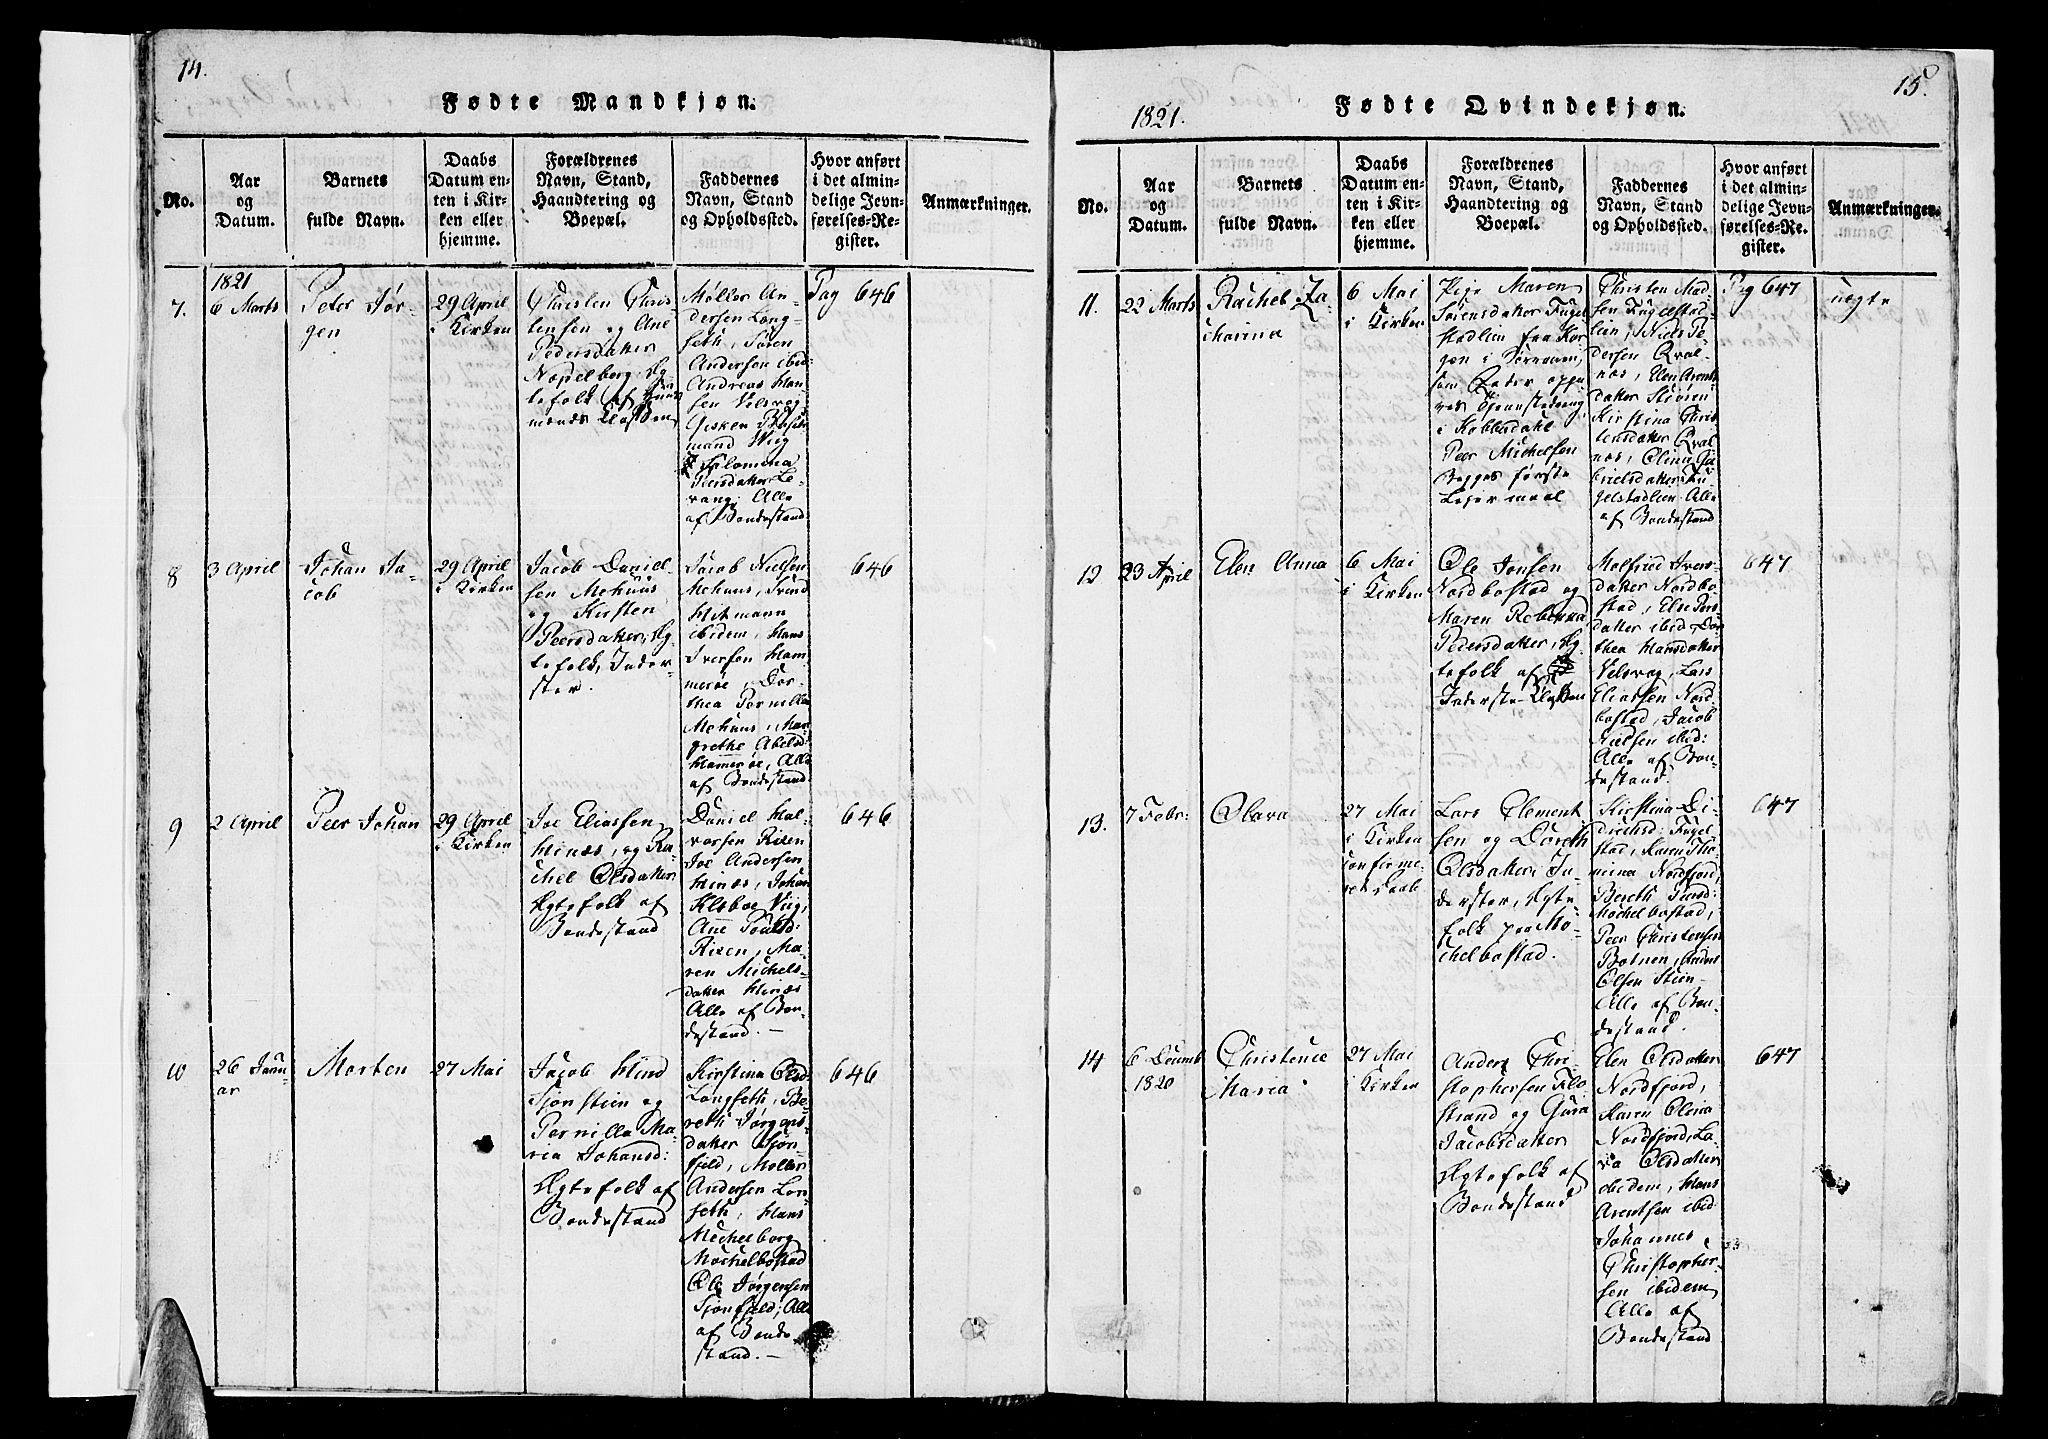 14.
Fødte Mandkjøn.
No.
Aar
og
Datum.
Barnets
fulde Navn.
Daabs
Datum en-
ten i Kir-
ken eller
hjemme.
Forældrenes
Navn, Stand,
Haandtering og
Boepæl.
Faddernes
Navn, Stand
og Opholdssted.
Hvor anført
i det almin-
delige Jevn-
førelses-Re-
gister.
Anmærkninger.
7.
1821
6 Marts
Peter Jør-
gen
29 April
i Kirken
Christen Chris-
tensen og Ane
Pedersdatter
Æg-
tefolk af
Møller An-
dersen Lang-
seth, Søren
Andersen ibid:
Andreas Han-
sen Velsvog
Wiig
Peersdatter Le-
vang. Alle
af Bondestand.
Pag 646
8
3 April
Johan Ja-
cob
29 April
i Kirken
Jacob Daniel-
sen Mehuus
og Kirsten
Peersdatter, Æg-
tefolk, Inder-
ster.
Jacob Nielsen
Mehuus,
ibidem, Hans
Iversen Ham-
merøe, Dor-
thea Pernilla
Mehuus, Mar-
grethe Abelsd
Hamerøe, Alle
af Bondestand.
646
9
2 April
Peer Johan
29 April
i Kirken
Joe Eliassen
Hinæs, og Ra-
chel Olsdatter
Ægtefolk af
Bondestand
Daniel Hal-
vorsen Risen
Joe Andersen
Hinæs, Johan
Wiig,
Ane
Risen, Ma-
ren Michels-
datter Hinæs
Alle af Bon-
destand. –
646
10
26 Janu-
ar
Morten
27 Mai
Jacob Hind
Sjonstien og
Pernilla Ma-
ria Johansd:
Ægtefolk af
Bondestand
Kirstina Olsd
Langseth, Be-
reth Jørgens-
datter Sjon-
fjeld, Møller
Andersen Lan-
seth, Hans
Michelborg
Michelbostad
Ole Jørgensen
Sjonfjeld; Alle
af Bonde-
stand. –
646
15.
1821.
Fødte Qvindekjøn.
No.
Aar
og
Datum.
Barnets
fulde Navn.
Daabs
Datum en-
ten i Kir-
ken eller
hjemme.
Forældrenes
Navn, Stand,
Haandtering og
Boepæl.
Faddernes
Navn, Stand
og Opholdssted.
Hvor anført
i det almin-
delige Jevn-
førelses-Re-
gister.
Anmærkninger.
11.
22 Marts
Rachel Za-
charina
6 Mai
i Kirken
Pige Maren
Sørensdatter Fugel-
stadlien fra Kor-
gen i Sørranen,
som Fader
Peer Michelsen
Begges første
Lejermaal
Christen Mad-
sen Fugelstad-
lien, Niels Pe-
dersen Qval-
næs, Elen Arents-
datter
Kirstina Chris-
tensdatter Qval-
næs, Olina Ga-
brielsdatter Fu-
gelstadlien. Alle
af Bondestand
Pag 647
uægte
12
23 April
Elen Anna
6 Mai
i Kirken
Ole Jonsen
Nordbostad og
Maren Rebecca
Pedersdatter, Æg-
tefolk af
Inderste-Classen
Malfred Ivers-
datter Nordbo-
stad, Else Peers-
datter ibid Dor-
thea Hansdatter
Velsvog, Lars
Eliassen Nord-
bostad, Jacob
Nielsen ibid:
Alle af Bon-
destand.
647
13.
7 Febr:
Olava
27 Mai
i Kirken
confirme-
ret Daab
Lars Clement-
sen og Doreth
Olsdatter, In-
derster, Ægte-
folk paa Mi-
chelbostad.
Kirstina Di-
driksd: Fugel-
stad, Karen Tho-
mina Nordfjord,
Bereth
Michelbostad,
Peer Christensen
Botnen, Anders
Olsen Stien
Alle af Bon-
destand.
647
14
6 Decemb
1820
Christence
Maria
27 Mai
i Kirken
Anders Chri-
stophersen Flo-
strand og Gura
Jacobsdatter
Ægtefolk af
Bondestand
Elen Olsdatter
Nordfjord,
Karen Olina
Nordfjord, La-
va Olsdatter
ibidem, Hans
Arentsen ibid
Johannes
Christopher-
sen ibidem
Alle af
Bondestand
647